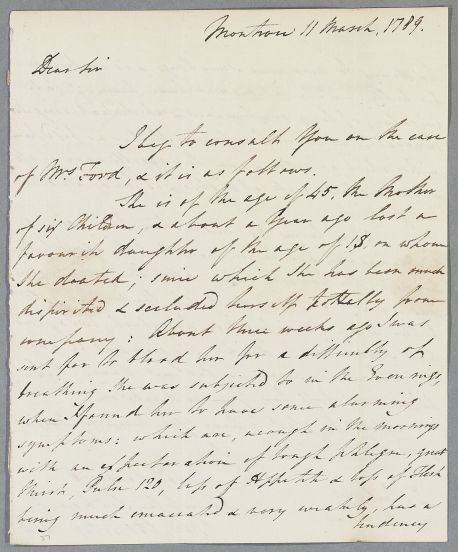 Montrose 11 March, 1789.
Dear Sir
I beg to consult You on the case
of Mrs Ford, & it is as follows.
She is of the age of 45. the Mother
of six Children, & about a Year ago lost a
favourite daughter of the age of 18, on whom
She doated; since which She has been much
dispirited & secluded herself totally from
company: About three weeks ago I was
sent for to blood her for a difficulty of
breathing She was subjected to in the Evenings,
when I found her to have some alarming
symptoms: which are, a cough in the mornings
with an expectoration of tough phlegm, great
thirst, Pulse 120, loss of Appetite & loss of Flesh
being much emaciated & very weakly, has a
tendency